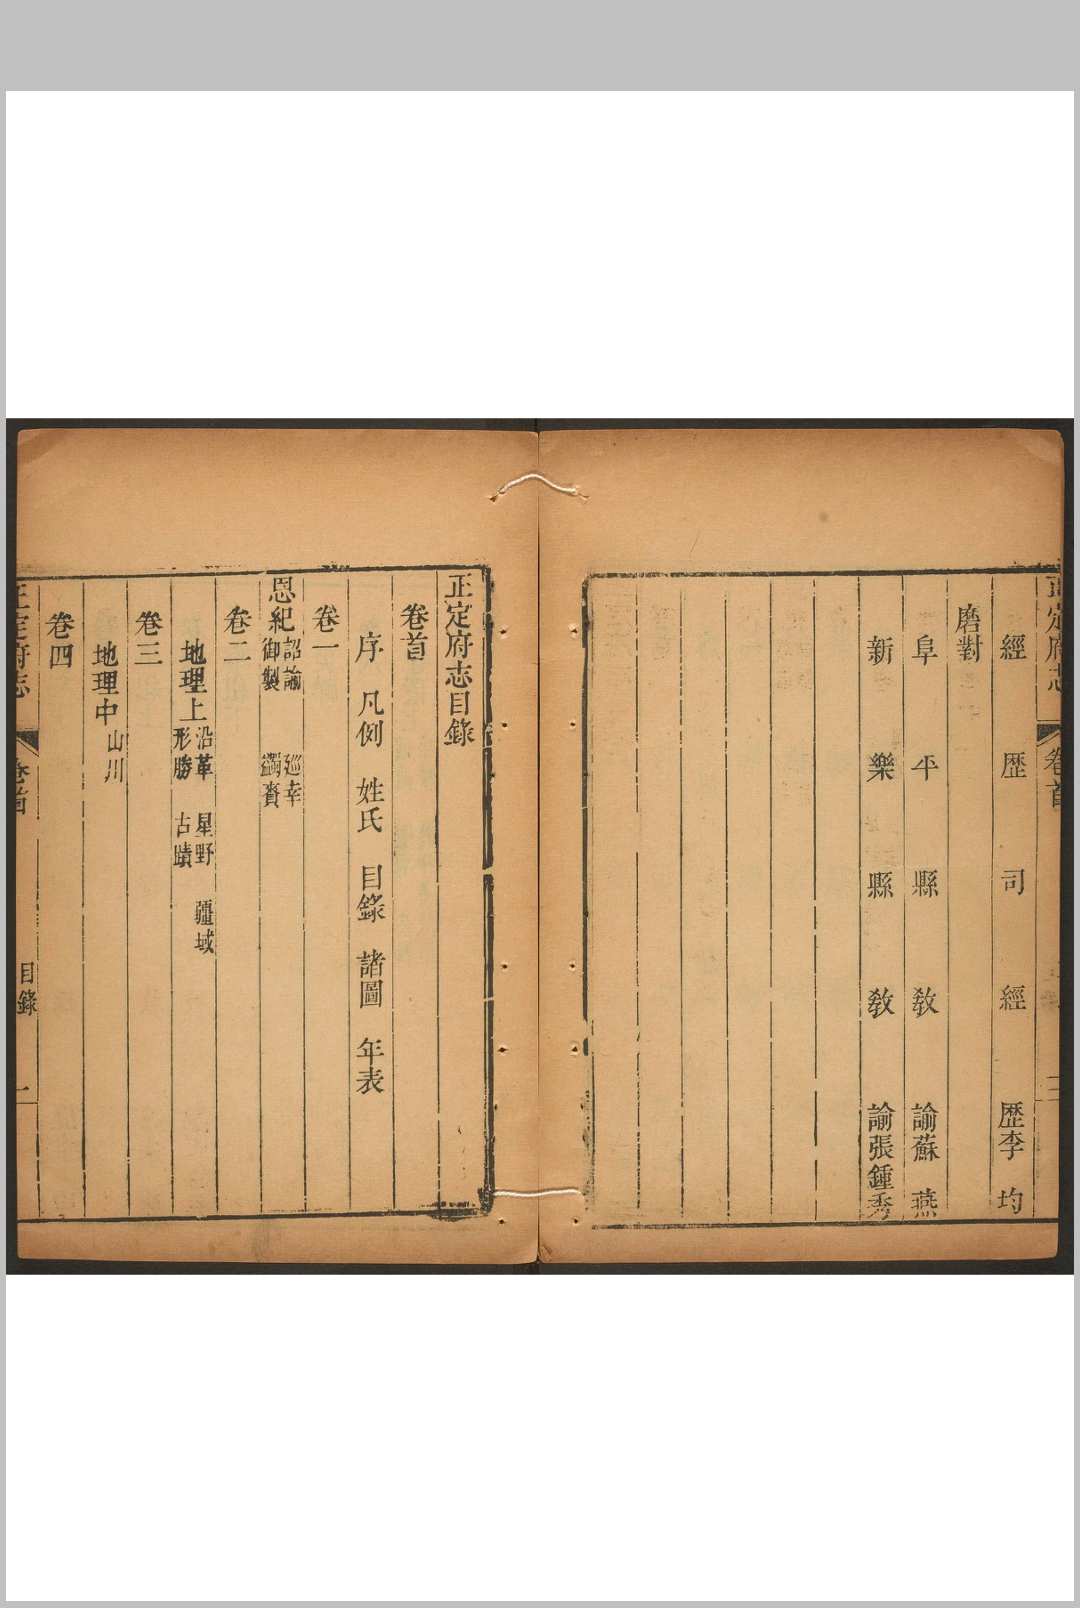 正定府志 卷首 三
經歷司經歷李均
磨對
阜平縣教諭蘇燕
新樂縣教諭張鍾秀
正定府志目錄
卷首
序 凡例 姓氏 目錄 諸圖 年表
卷一
恩紀 詔諭 巡幸 御製 蠲賚
卷二
地理上 沿革 星野 疆域 形勝 古蹟
卷三
地理中 山川
卷四
正定府志 卷首 目錄 一